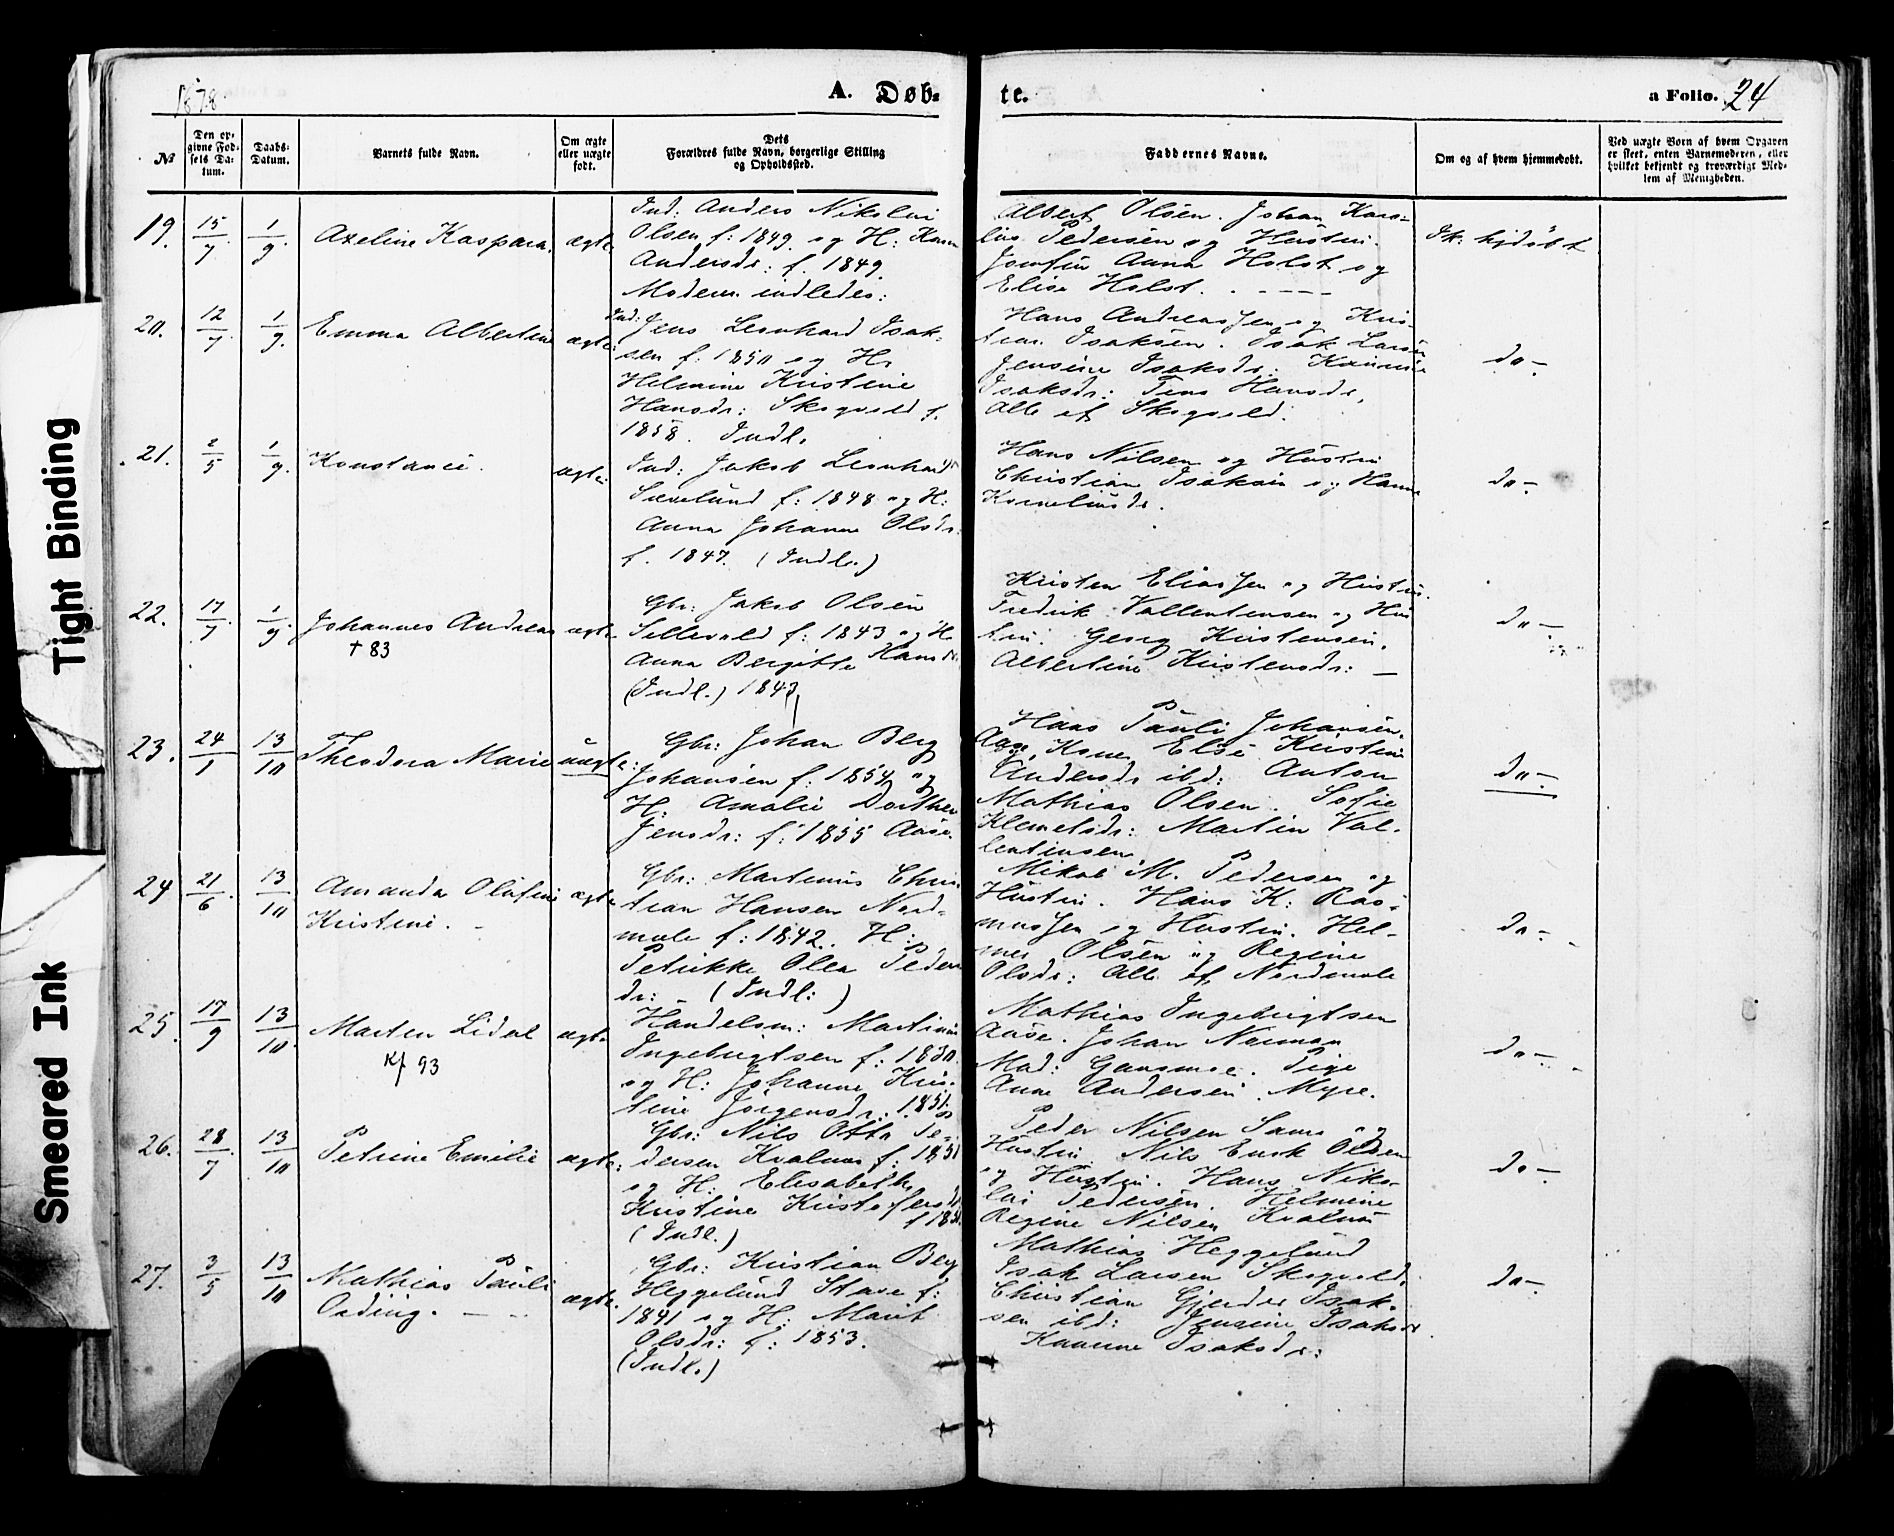 Tight Binding
Smeared Ink
1878.
A. Døb-
te.
a Folio. 24
№
Den op-
givne Fød-
sels Da-
tum.
Daabs-
Datum.
Barnets fulde Navn.
Om ægte
eller uægte
født.
Dets
Forældres fulde Navn, borgerlige Stilling
og Opholdssted.
Faddernes Navne.
Om og af hvem hjemmedøbt.
Ved uægte Børn af hvem Opgaven
er skeet, enten Barnemoderen, eller
hvilket bekjendt og troværdigt Med-
lem af Menigheden.
19. 15/7. 1/9. Axeline Kaspara. ægte
Ind: Anders Nikolai
Olsen f: 1849. og H: Karen
Andersdr: f. 1849.
Modern indledes:
Albert Olsen. Johan
Pedersen og Hustru.
Jomfru Anna Holst og
Elise Holst.
Ik: hjdøbt
20. 12/7 1/9. Emma Albertine ægte:
Ind: Jens Leonhard Isak-
sen f: 1850 og H:
Helmine Kristine
Hansdr: Skogvold f.
1858. Indl.
Hans Andreassen og Kris-
tian Isaksen. Isak Larsen
Jensine Isaksdr: Kanine
Isaksdr: Hansdr.
Alle af Skogvold.
do-
21. 2/5 1/9. Konstance. ægte:
Ind: Jakob Leonhard
f: 1848 og H:
Anna Johanna Olsdr:
f. 1847. (Indl.)
Hans Nilsen og Hustru
Christian Isaksen og Hanna
Korneliusdr.
do-
22. 17/7. 1/9. Johannes Andreas ægte.
+ 83
Gbr: Jakob Olsen
Sellevold f: 1843 og H.
Anna Bergitte Hansdr.
(Indl.) 1843
Kristen Eliassen og Hustru.
Fredrik Vallentensen og Hus
tru. Georg Kristensen.
Albertine Kristensdr: —
do-
23. 24/1 13/10 Theodora Marie uægte:
Gbr: Johan Berg
Johansen f: 1854 og
H: Amalie Dorthea
Jensdr: f: 1855 Aase.
Hans Pauli Johansen.
Aase, Kone Else Kirstine
Andersdr ibd: Anton
Mathias Olsen. Sofie
Klemetsdr: Martin Val-
lentinsen.
do-
24 21/6. 13/10 Amanda Olufine ægte
Kristine. -
Gbr: Martinus Chris-
tian Hansen Nord-
mele f: 1842. H:
Petrikke Olea Peders
dr: - (Indl:)
Mikal M. Pedersen og
Hustru. Hans K: Ras-
mussen og Hustru. Hel-
mer Olsen og Regine
Olsdr: Alle af Nordmele
do-
25. 17/9 13/10. Marten Lidal ægte
Kf 93
Handelsm: Martinus
Ingebrigtsen f: 1830.
og H: Johanne Kris-
tine Jørgensdr: 1851.
Mathias Ingebrigtsen
Aase. Johan Norman
Mad: Gansmoe. Pige
Anne Andersen Myre.
do-
26. 28/7 13/10 Petrine Emilie ægte:
Gbr: Nils Otto Pe-
dersen Kvalnes f: 1851
og H: Elisabeth
Kristine Kristofersdr
(Indl.)
Peder Nilsen og
Hustru. Nils Olsen
og Hustru. Hans Niko-
lai Pedersen. Helmine
Regine Nilsen Kvalnes
do-
27. 3/5 13/10 Mathias Pauli ægte.
Ording. —
Gbr: Kristian Berg
Heggelund Stave f:
1841 og H: Marit
Olsdr: f: 1853.
(Indl.)
Mathias Heggelund
Isak Larsen Skogvold.
Christian Gjerder Isak-
sen ibd: Jensine Isaksdr
Kanine Isaksdr:
do-